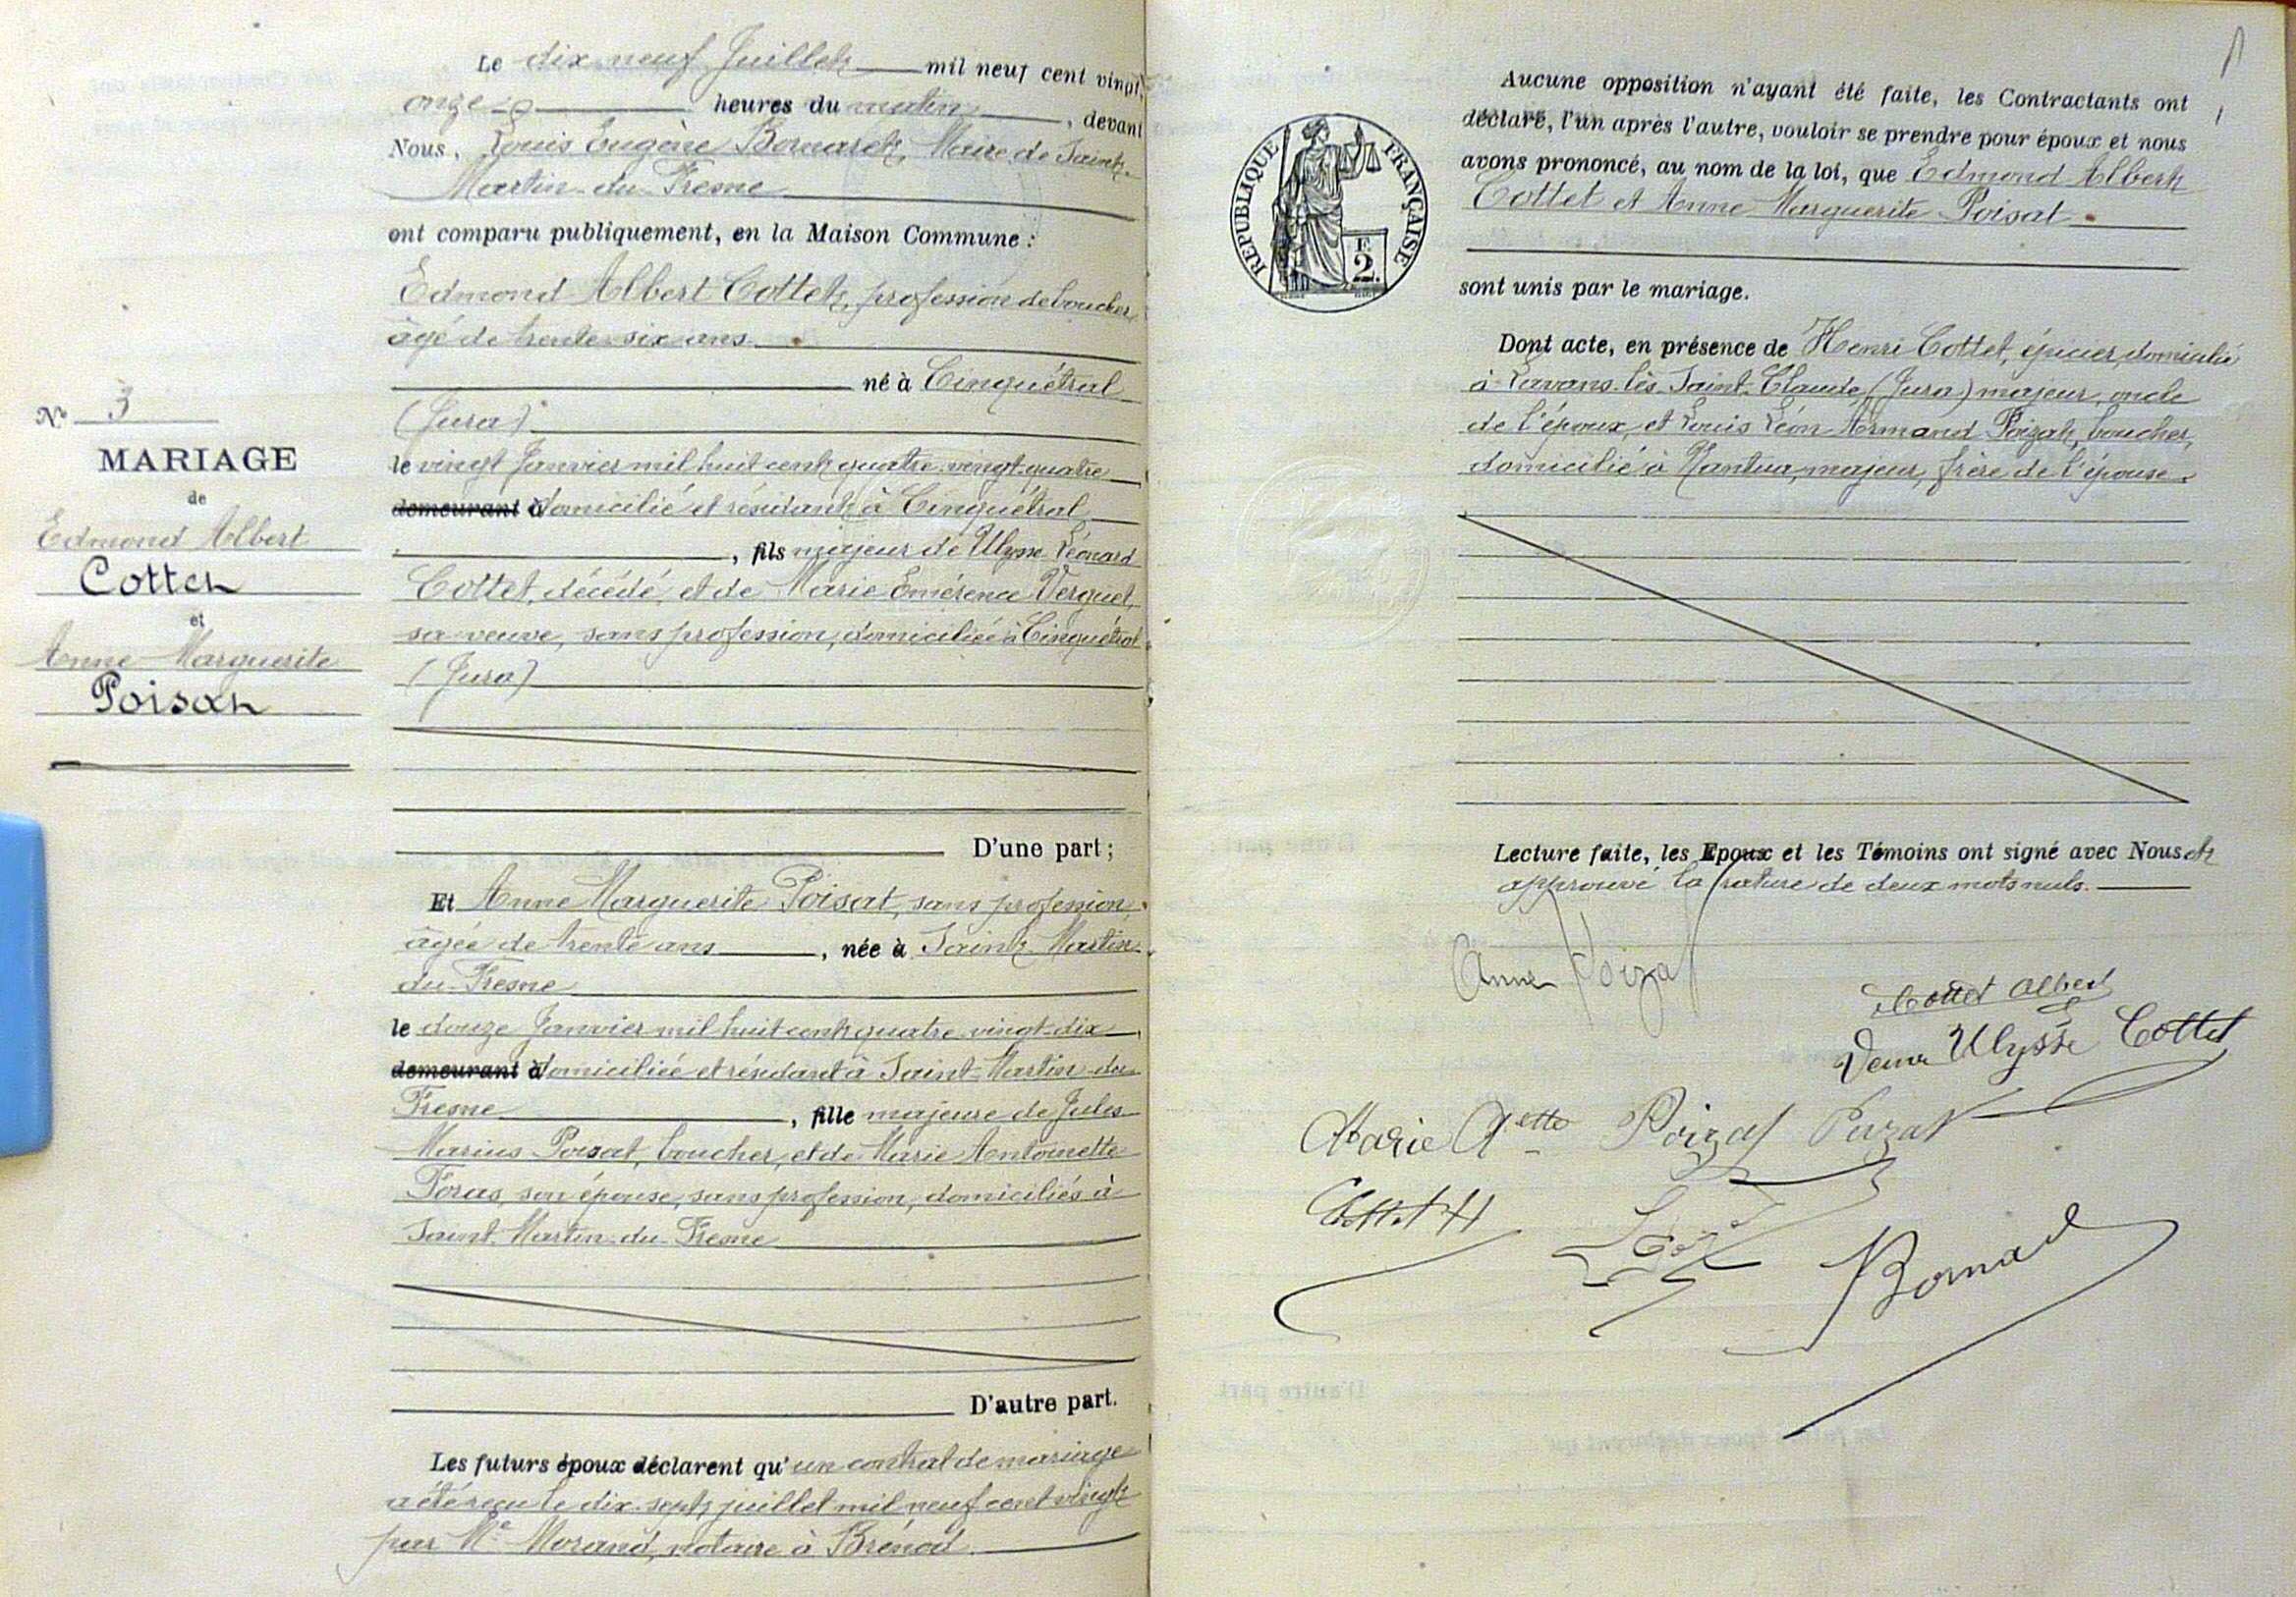 Le dix neuf Juillet mil neuf cent vingt,
onze heures du matin, devant
Nous, Louis Eugène Bornaret, Maire de Saint-
Martin-du-Fresne
ont comparu publiquement, en la Maison Commune :
Edmond Albert Cottet, profession de boucher,
âgé de trente-six ans.
né à Cinquétral
(Jura)
le vingt Janvier mil huit cent quatre-vingt-quatre
demeurant à domicilié et résidant à Cinquétral
, fils majeur de Ulysse Léonard
Cottet, décédé, et de Marie Emérence Verguet,
sa veuve, sans profession, domiciliée à Cinquétral
(Jura)
N° 3
MARIAGE
de
Edmond Albert
Cottet
et
Anne Marguerite
Poisat
D'une part ;
Et Anne Marguerite Poisat, sans profession,
âgée de trente ans, née à Saint-Martin
du-Fresne
le douze Janvier mil huit cent quatre-vingt-dix
demeurant à domiciliée et résidant à Saint-Martin-du-
Fresne, fille majeure de Jules
Marius Poisat, boucher, et de Marie Antoinette
Foras, son épouse, sans profession, domiciliés à
Saint-Martin-du-Fresne
D'autre part.
Les futurs époux déclarent qu'un contrat de mariage
a été reçu le dix-sept juillet mil neuf cent vingt
par Me Morand, notaire à Brénod.
RÉPUBLIQUE FRANÇAISE
F.
2.
Aucune opposition n'ayant été faite, les Contractants ont
déclaré, l'un après l'autre, vouloir se prendre pour époux et nous
avons prononcé, au nom de la loi, que Edmond Albert
Cottet et Anne Marguerite Poisat.
sont unis par le mariage.
Dont acte, en présence de Henri Cottet, épicier, domicilié
à Lavans-lès-Saint-Claude (Jura) majeur, oncle
de l'époux, et Louis Léon Armand Poizat, boucher,
domicilié à Nantua, majeur, frère de l'épouse.
Lecture faite, les Epoux et les Témoins ont signé avec Nous et
approuvé la rature de deux mots nuls.
Anne Poizat
Cottet Albert
Veuve Ulysse Cottet
Marie Aette Poizat Poizat
Cottet H
Bornaret